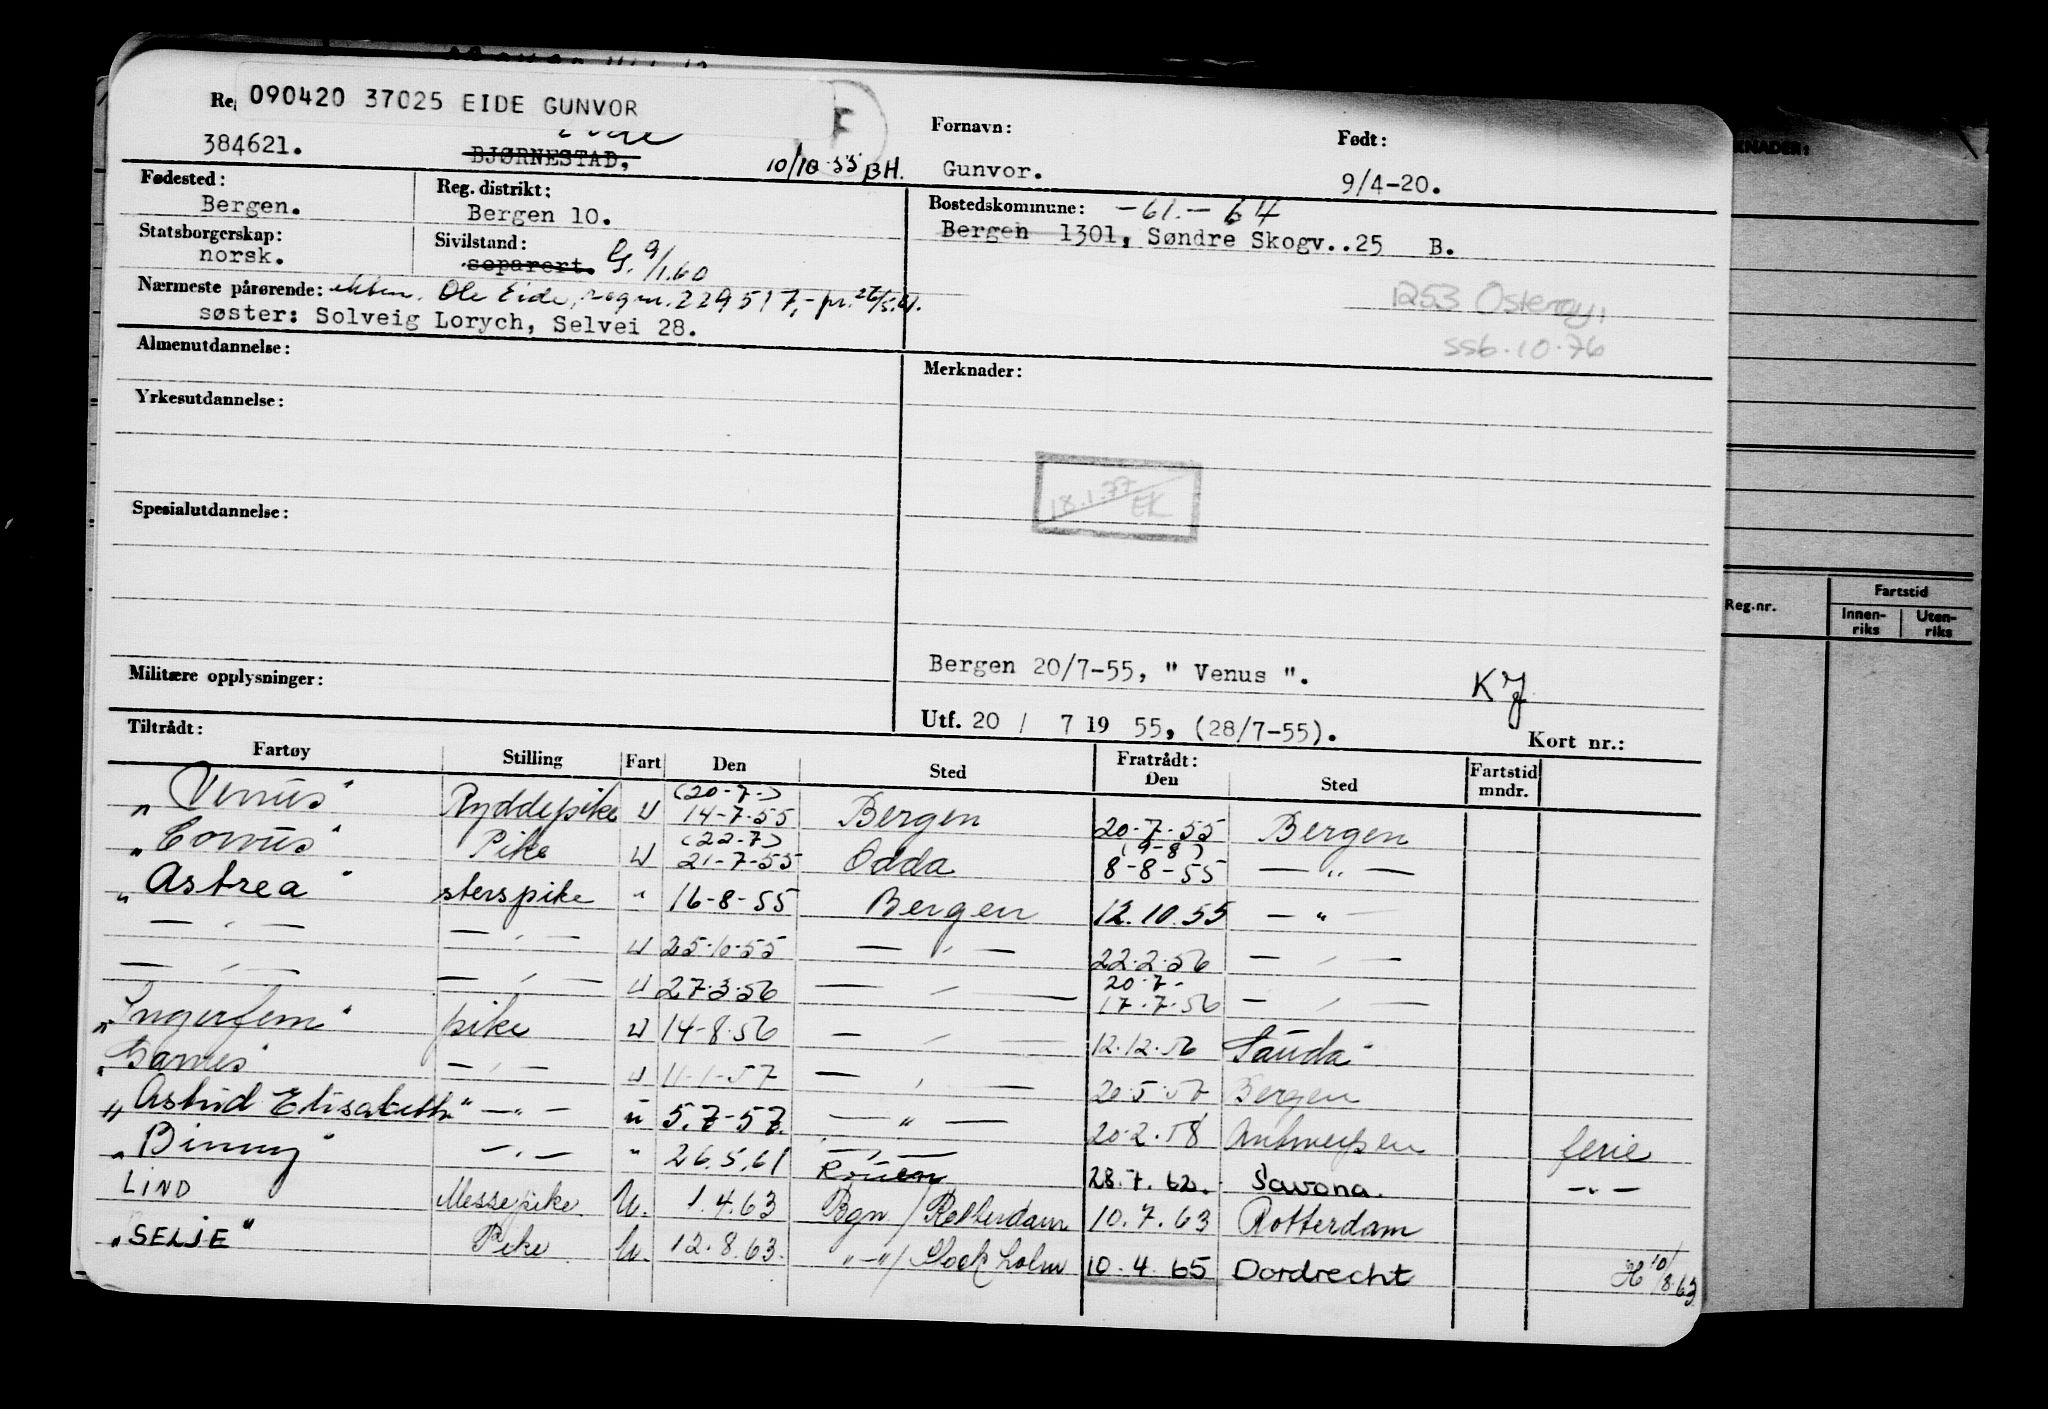 Re
090420 37025 EIDE GUNVOR
F
Fornavn:
Født:
384621.
BJØRNESTAD,
10/10-55 BH.
Gunvor.
9/4-20.
KNADER:
Fødested:
Bergen.
Reg. distrikt:
Bergen 10.
Bostedskommune: -61.-64
Bergen 1301, Søndre Skogv..25 B.
Statsborgerskap:
norsk.
Sivilstand:
separert. G. 9/1.60
1253 Osterøy,
SSB.10.76
Nærmeste pårørende: ekten. Ole Eide, reg.nr. 229517,- pr.
søster: Solveig Lorych, Selvei 28.
Almenutdannelse:
Merknader:
Yrkesutdannelse:
18.1.77 EK
Spesialutdannelse:
Reg.nr.
Fartstid
Innen-riks
Uten-riks
Bergen 20/7-55, " Venus ".
KJ
Militære opplysninger:
Utf. 20 / 7 19 55, (28/7-55).
Kort nr.:
Tiltrådt:
Fartøy Stilling Fart Den Sted Fratrådt: Den Sted Fartstid mndr.
"Venus" Ryddepike U (20-7-) 14-7-55 Bergen 20-7-55 Bergen
"Corvus" Pike U (22-7) 21-7-55 Odda (9-8) 8-8-55 — " —
"Astrea" sterspike " 16-8-55 Bergen 12.10.55 — " —
— " — — " — U 25-10-55 — " — 22-2-56 — " —
— " — — " — U 27-3-56 — " — 20-7- 17-7-56 — " —
"Ingerfem" pike U 14-8-56 — " — 12-12-56 Sauda
— " — U 11-1-57 — " — 20-5-57 Bergen
"Astrid Elisabeth" — " — U 5.7-57. — " — 20-2-58 Antwerpen ferie
"Binny" — " — " 26.5.61 Rouen 28.7.62. Savona. — " —
LIND Messepike U. 1.4.63 Bgn/Rotterdam 10.7.63 Rotterdam
"SELJE" Pike U. 12.8.63. " — "/Stockholm 10.4.65 Dordrecht H 10/8.63